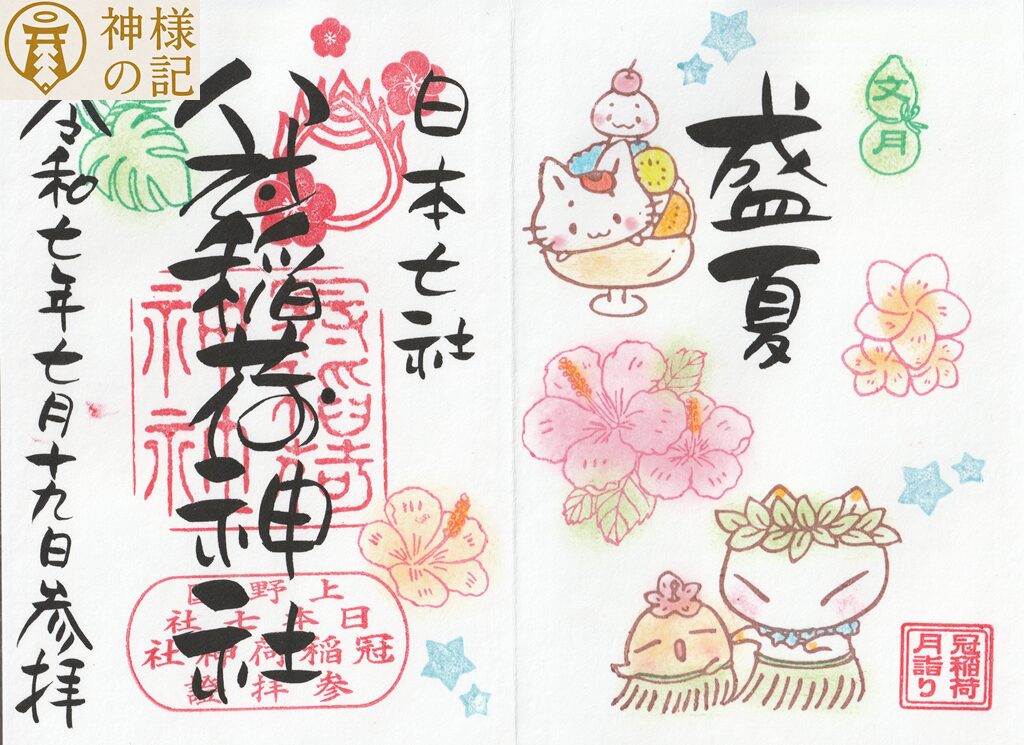 神様
の記
文月
盛夏
冠稲荷
月詣り
日本七社
冠稲荷神社
令和七年七月十九日参拝
上野國
日本七社
冠稲荷神社
参拝證